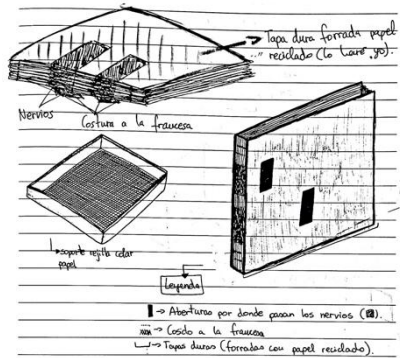 Tapa dura forrada papel
reciclado (lo haré yo).
Nervios
Costura a la francesa
soporte rejilla colar
papel
Leyenda
→ Aberturas por donde pasan los nervios ( ).
→ Cosido a la francesa
→ Tapas duras (forradas con papel reciclado).